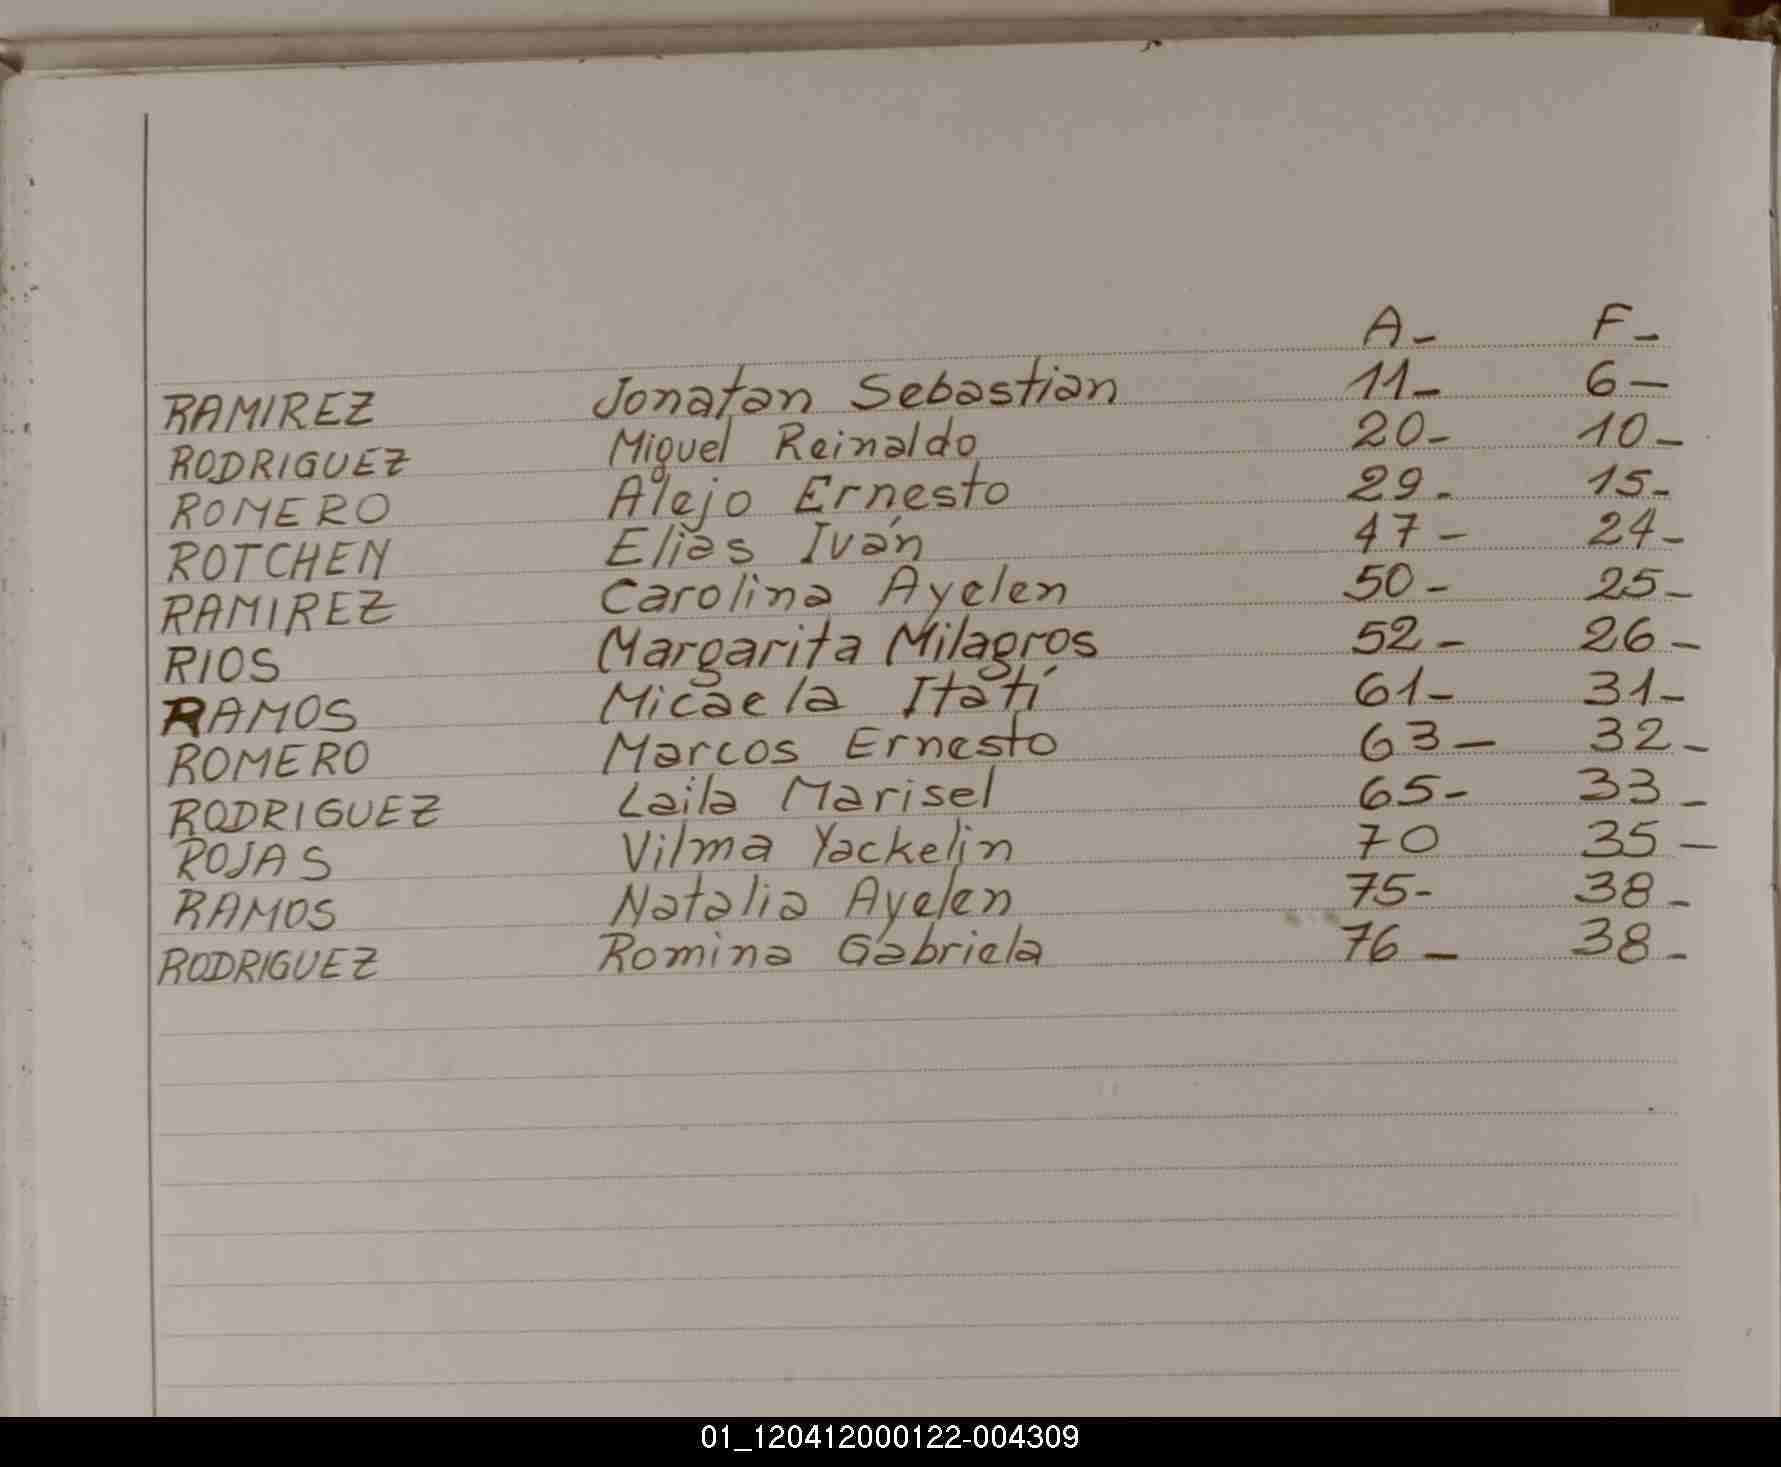 A- F-
RAMIREZ Jonatan Sebastian 11- 6-
RODRIGUEZ Miguel Reinaldo 20- 10-
ROMERO Alejo Ernesto 29- 15-
ROTCHEN Elias Iván 47- 24-
RAMIREZ Carolina Ayelen 50- 25-
RIOS Margarita Milagros 52- 26-
RAMOS Micaela Itatí 61- 31-
ROMERO Marcos Ernesto 63- 32-
RODRIGUEZ Laila Marisel 65- 33-
ROJAS Vilma Yackelin 70 35-
RAMOS Natalia Ayelen 75- 38-
RODRIGUEZ Romina Gabriela 76- 38-
01_120412000122-004309